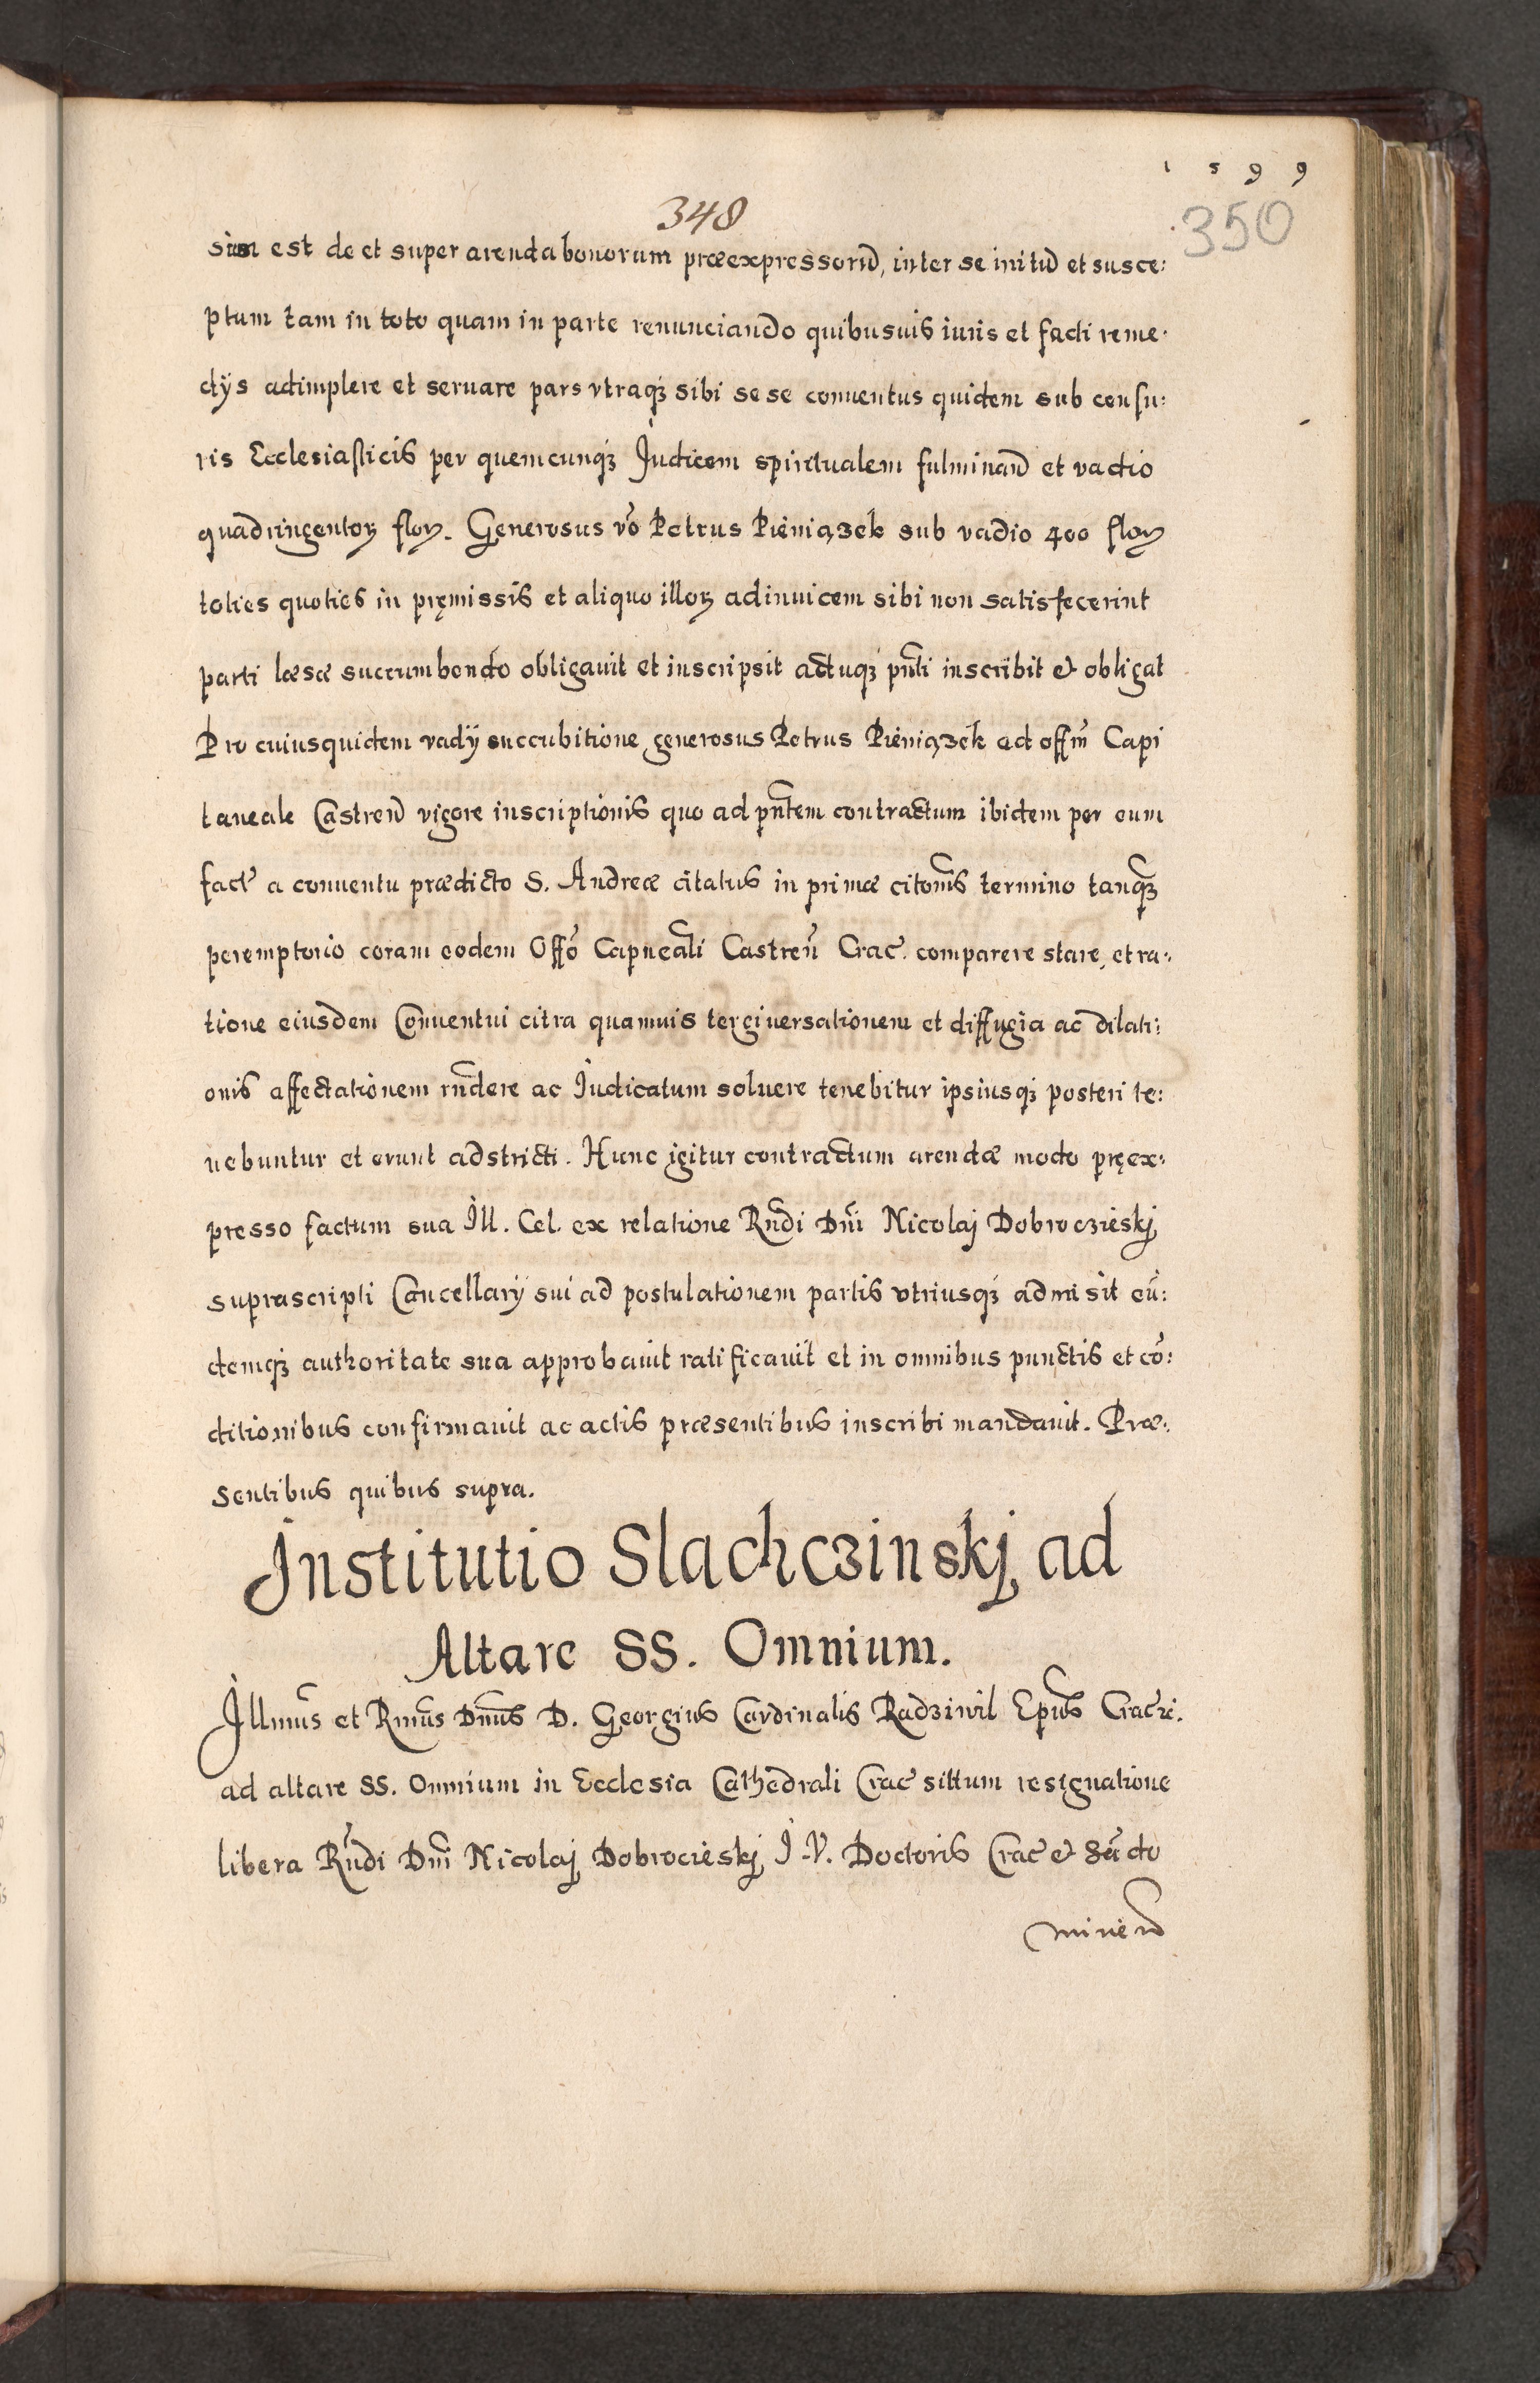 1599
348
350
sum est de et super arenda bonorum præexpressorū, inter se initū et susce:
ptum tam in toto quam in parte renunciando quibusuis iuris et facti reme:
dijs adimplere et seruare pars vtraqꝫ sibi sese conuentus quidem sub censu:
ris Ecclesiasticis per quemcunqꝫ Judicem spiritualem fulminand̄ et vadio
quadringentoꝝ floꝝ. Generosus vō Petrus Pieniązek sub vadio 400 floꝝ
toties quoties in pręmissis et aliquo illoꝝ adinuicem sibi non satisfecerint
parti læsæ succumbendo obligauit et inscripsit actuqꝫ pn̄ti inscribit et obligat
Pro cuiusquidem vadij succubitione generosus Petrus Pieniązek ad offm̄ Capi
taneale Castren̄ vigore inscriptionis quo ad pn̄tem contractum ibidem per eum
fact̄ a conuentu prædicto S. Andreæ citatus in primæ citoīs termino tanqꝫ
peremptorio coram eodem Offō Capneāli Castren̄ Crac̄. comparere stare, et ra:
tione eiusdem Conuentui citra quamuis tergiuersationem et diffugia ac dilati:
onis affectationem rn̄dere ac Judicatum soluere tenebitur ipsiusqꝫ posteri te:
nebuntur et erunt adstricti. Hunc igitur contractum arendæ modo pręex:
presso factum sua Ill. Cel. ex relatione Rn̄di Dn̄i Nicolaj Dobroczieskj
suprascripti Cancellarij sui ad postulationem partis vtriusqꝫ admisit eū:
demqꝫ authoritate sua approbauit ratificauit et in omnibus punctis et cō:
ditionibus confirmauit ac actis præsentibus inscribi mandauit. Præ:
sentibus quibus supra.
Institutio Slachczinskj ad
Altare SS. Omnium.
Illmūs et Rmūs Dnūs D. Georgius Cardinalis Radziwil Epūs Crac̄.
ad altare SS. Omnium in Ecclesia Cathedrali Crac̄ situm resignatione
libera Rn̄di Dn̄i Nicolaj Dobrocieskj J.V. Doctoris Crac̄ et